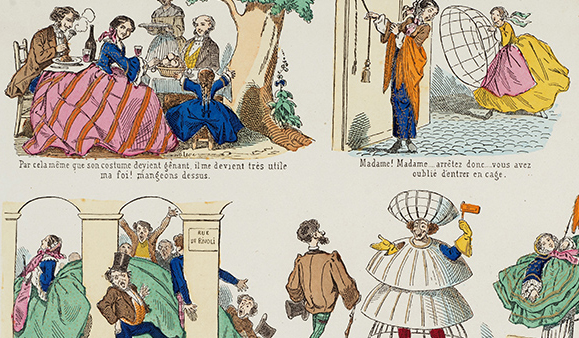 Par cela même que son costume devient gênant, il me devient très utile
ma foi! mangeons dessus.
Madame! Madame... arrêtez donc...vous avez
oublié d'entrer en cage.
RUE
DE RIVOLI